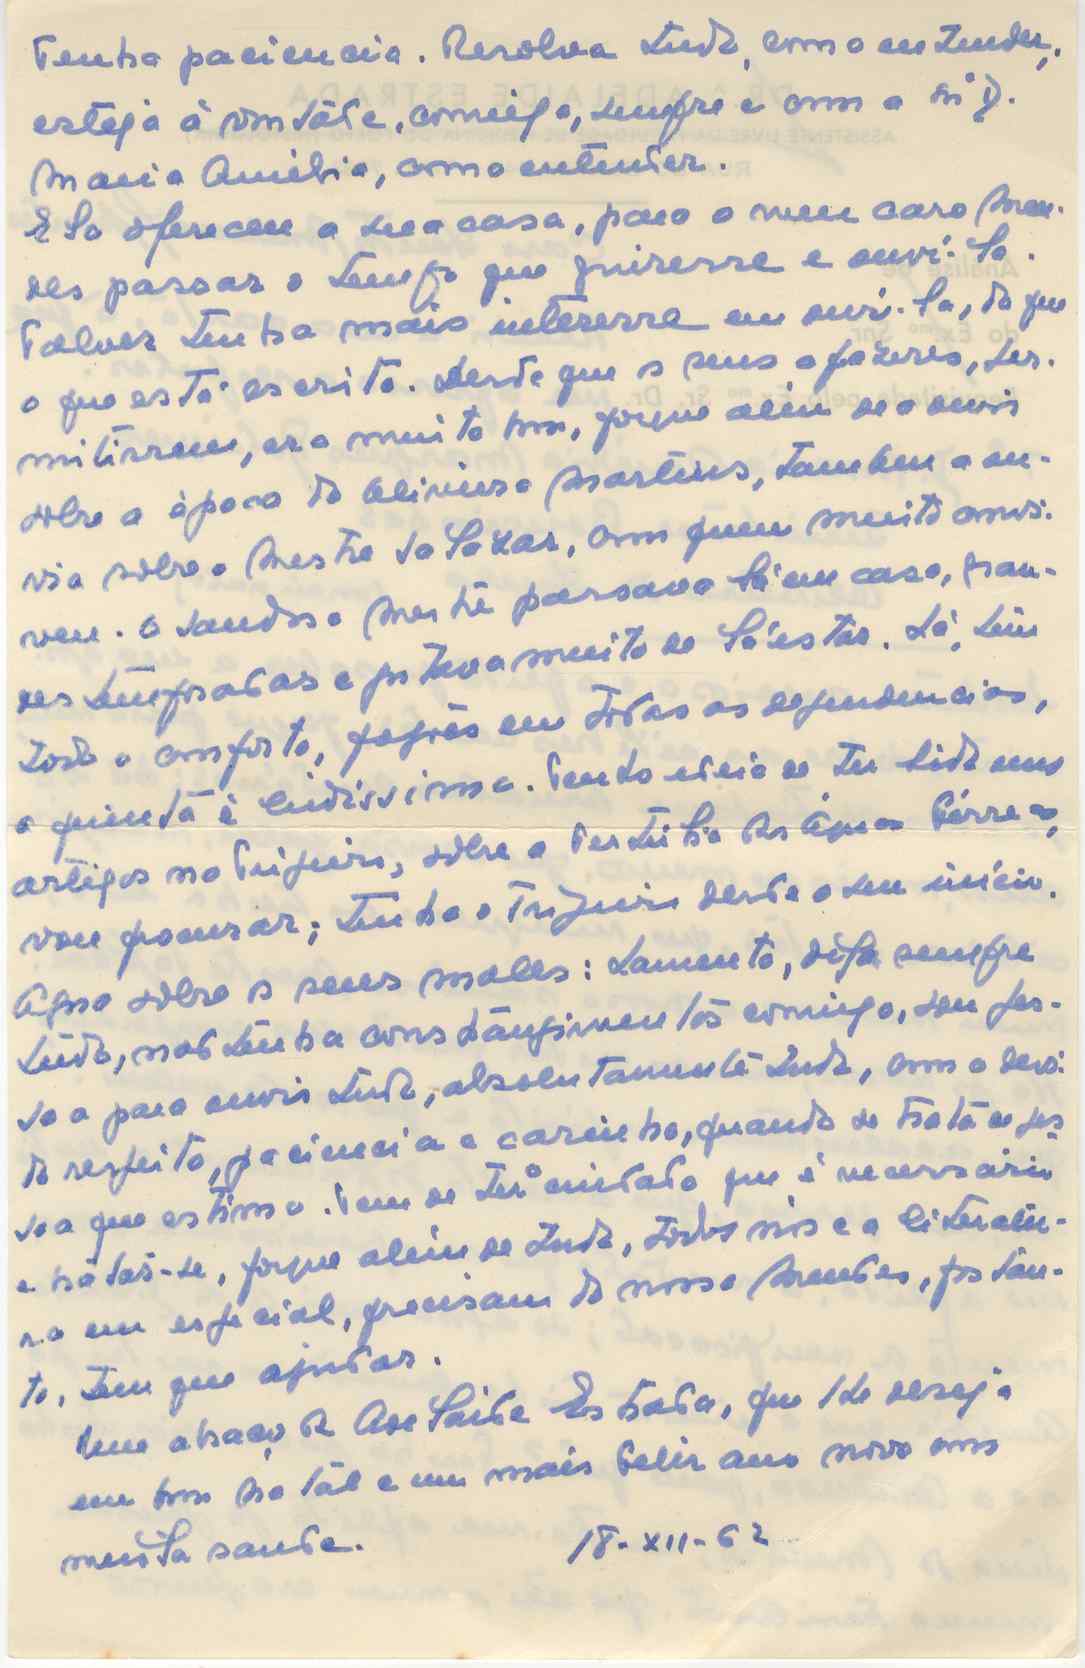 Tenha paciencia. Resolva tudo, como entender,
esteja à vontade, comigo, sempre e com a Srª D.
Maria Amélia, como entender.
Ela ofereceu a sua casa, para o meu caro Men-
des passar o tempo que quizesse e ouvi-la.
Talvez tenha mais interesse em ouvi-la, do que
o que está escrito. Desde que os seus afazeres, per-
mitissem, era muito bom, porque além de a ouvir
sôbre a época do Oliveira Martins, tambem a ou-
via sôbre o Mestre Salazar, com quem muito convi-
veu. O saudoso Mestre passava lá em casa, gran-
des temporadas e gostava muito de lá estar. Lá, tem
todo o conforto, fogões em todas as dependencias,
a quinta é lindissima. Tenho ideia de ter lido uns
artigos no Trigueiro, sôbre a Tertulia das Águas Férreas,
vou procurar; tenho o Trigueiro desde o seu início.
Agora sôbre os seus males: Lamento, diga sempre
tudo, não tenha constrangimentos comigo, sou pes-
soa para ouvir tudo, absolutamente tudo, com o devi-
do respeito, paciencia e carinho, quando se trata de pes-
soa que estimo. Tem de ter o cuidado que é necessário
e tratar-se, porque além de tudo, todos nós e a literatu-
ra em especial, precisam do nosso Mendes, portan-
to, tem que ajudar.
Um abraço da Adelaide Estrada, que lhe deseja
um bom Natal e um mais feliz ano novo com
muita saude. 18-XII-62